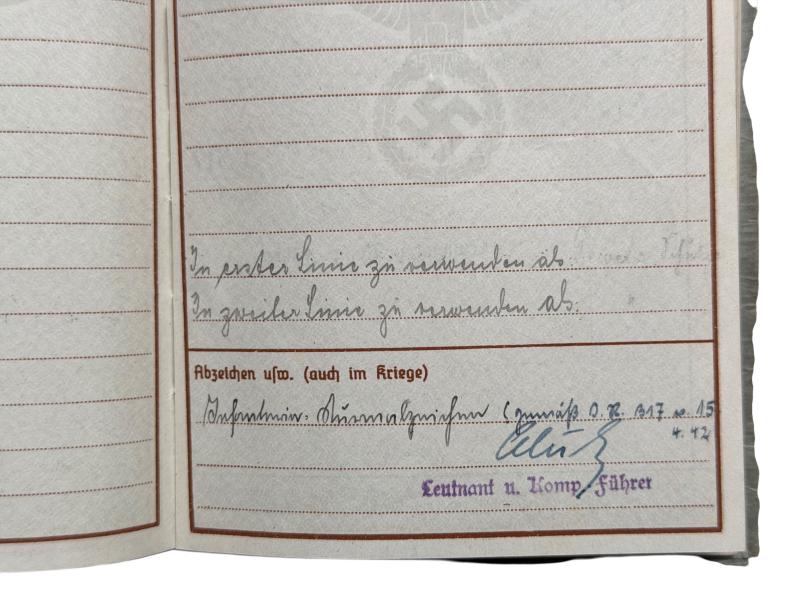 In erster Linie zu verwenden als
In zweiter Linie zu verwenden als:
Abzeichen usw. (auch im Kriege)
Infanterie-Sturmabzeichen (gemäß D.K. 317 v. 15
4. 42
Leutnant u. Komp. Führer